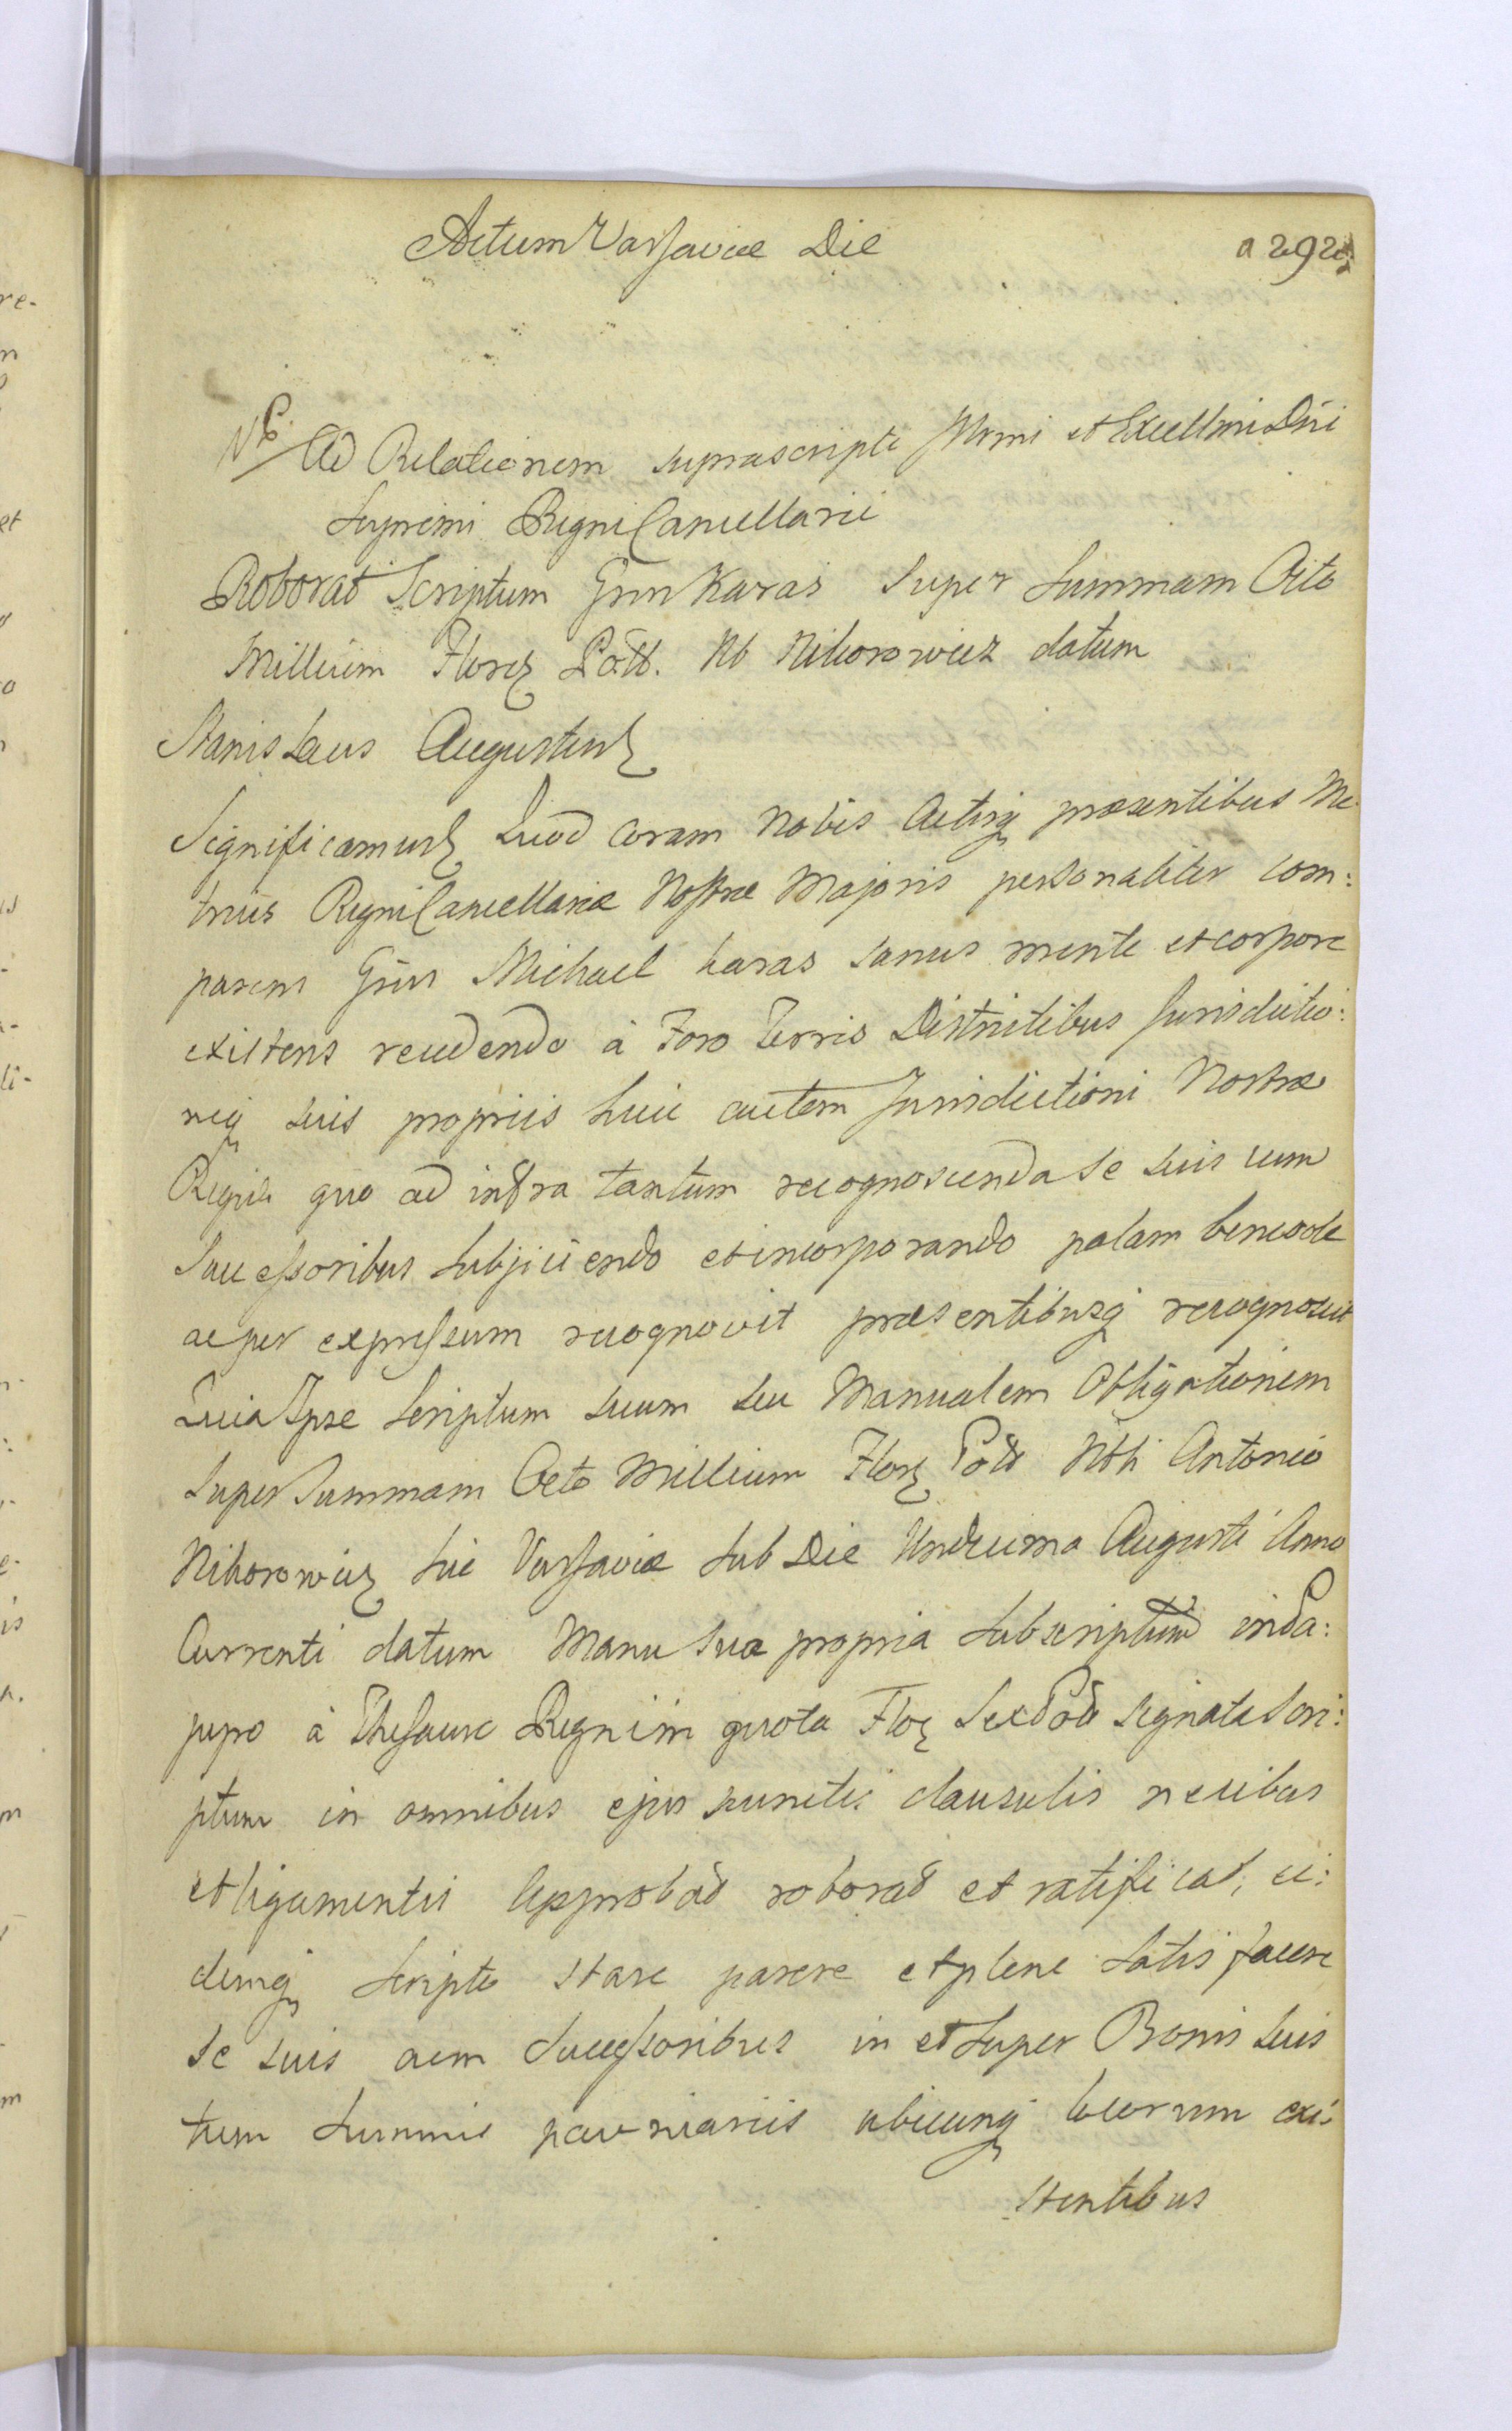 Actum Varsaviae Die
a 292
NB. Ad Relationem suprascripti Illrmi et Excellmi Dñi
Supremi Regni Cancellarii
Roborat Scriptum Gnri Karas Super Summam Octo
Millium Florz Poll. Nb Nikorowicz datum
Stanislaus Augustus
Significamus Quod Coram Nobis Actisq praesentibus Me
tricis Regni Cancellariae Nostrae Majoris personaliter com:
parens Gnrs Michael Karas sanus mente et corpore
existens recedendo à Foro Terris Districtibus Jurisdictio:
niq suis propriis huic autem Jurisdictioni Nostrae
Regiae quo ad infra tantum recognoscenda Se suis cum
Successoribus Subjiciendo et incorporando palam libere
ac per expressum recognovit praesentibusq recognoscit
Quia Ipse Scriptum suum seu Manualem Obligationem
Super Summam Octo Millium Florz Poll Nbli Antonio
Nikorowicz hic Varsaviae Sub Die Undecima Augusti Anno
Currenti datum Manu Sua propria Subscriptum in Pa:
pyro à Thesauro Regni in quota Floz Sex Poll Signata Scri:
ptum in omnibus ejus punctis clausulis nexibus
et ligamentis Approbat roborat et ratificat, ei:
demq Scripto stare parere et plene Satisfacere
Se suis cum Successoribus in et Super Bonis Suis
tum Summis pecuniariis ubicunq locorum exi:
stentibus